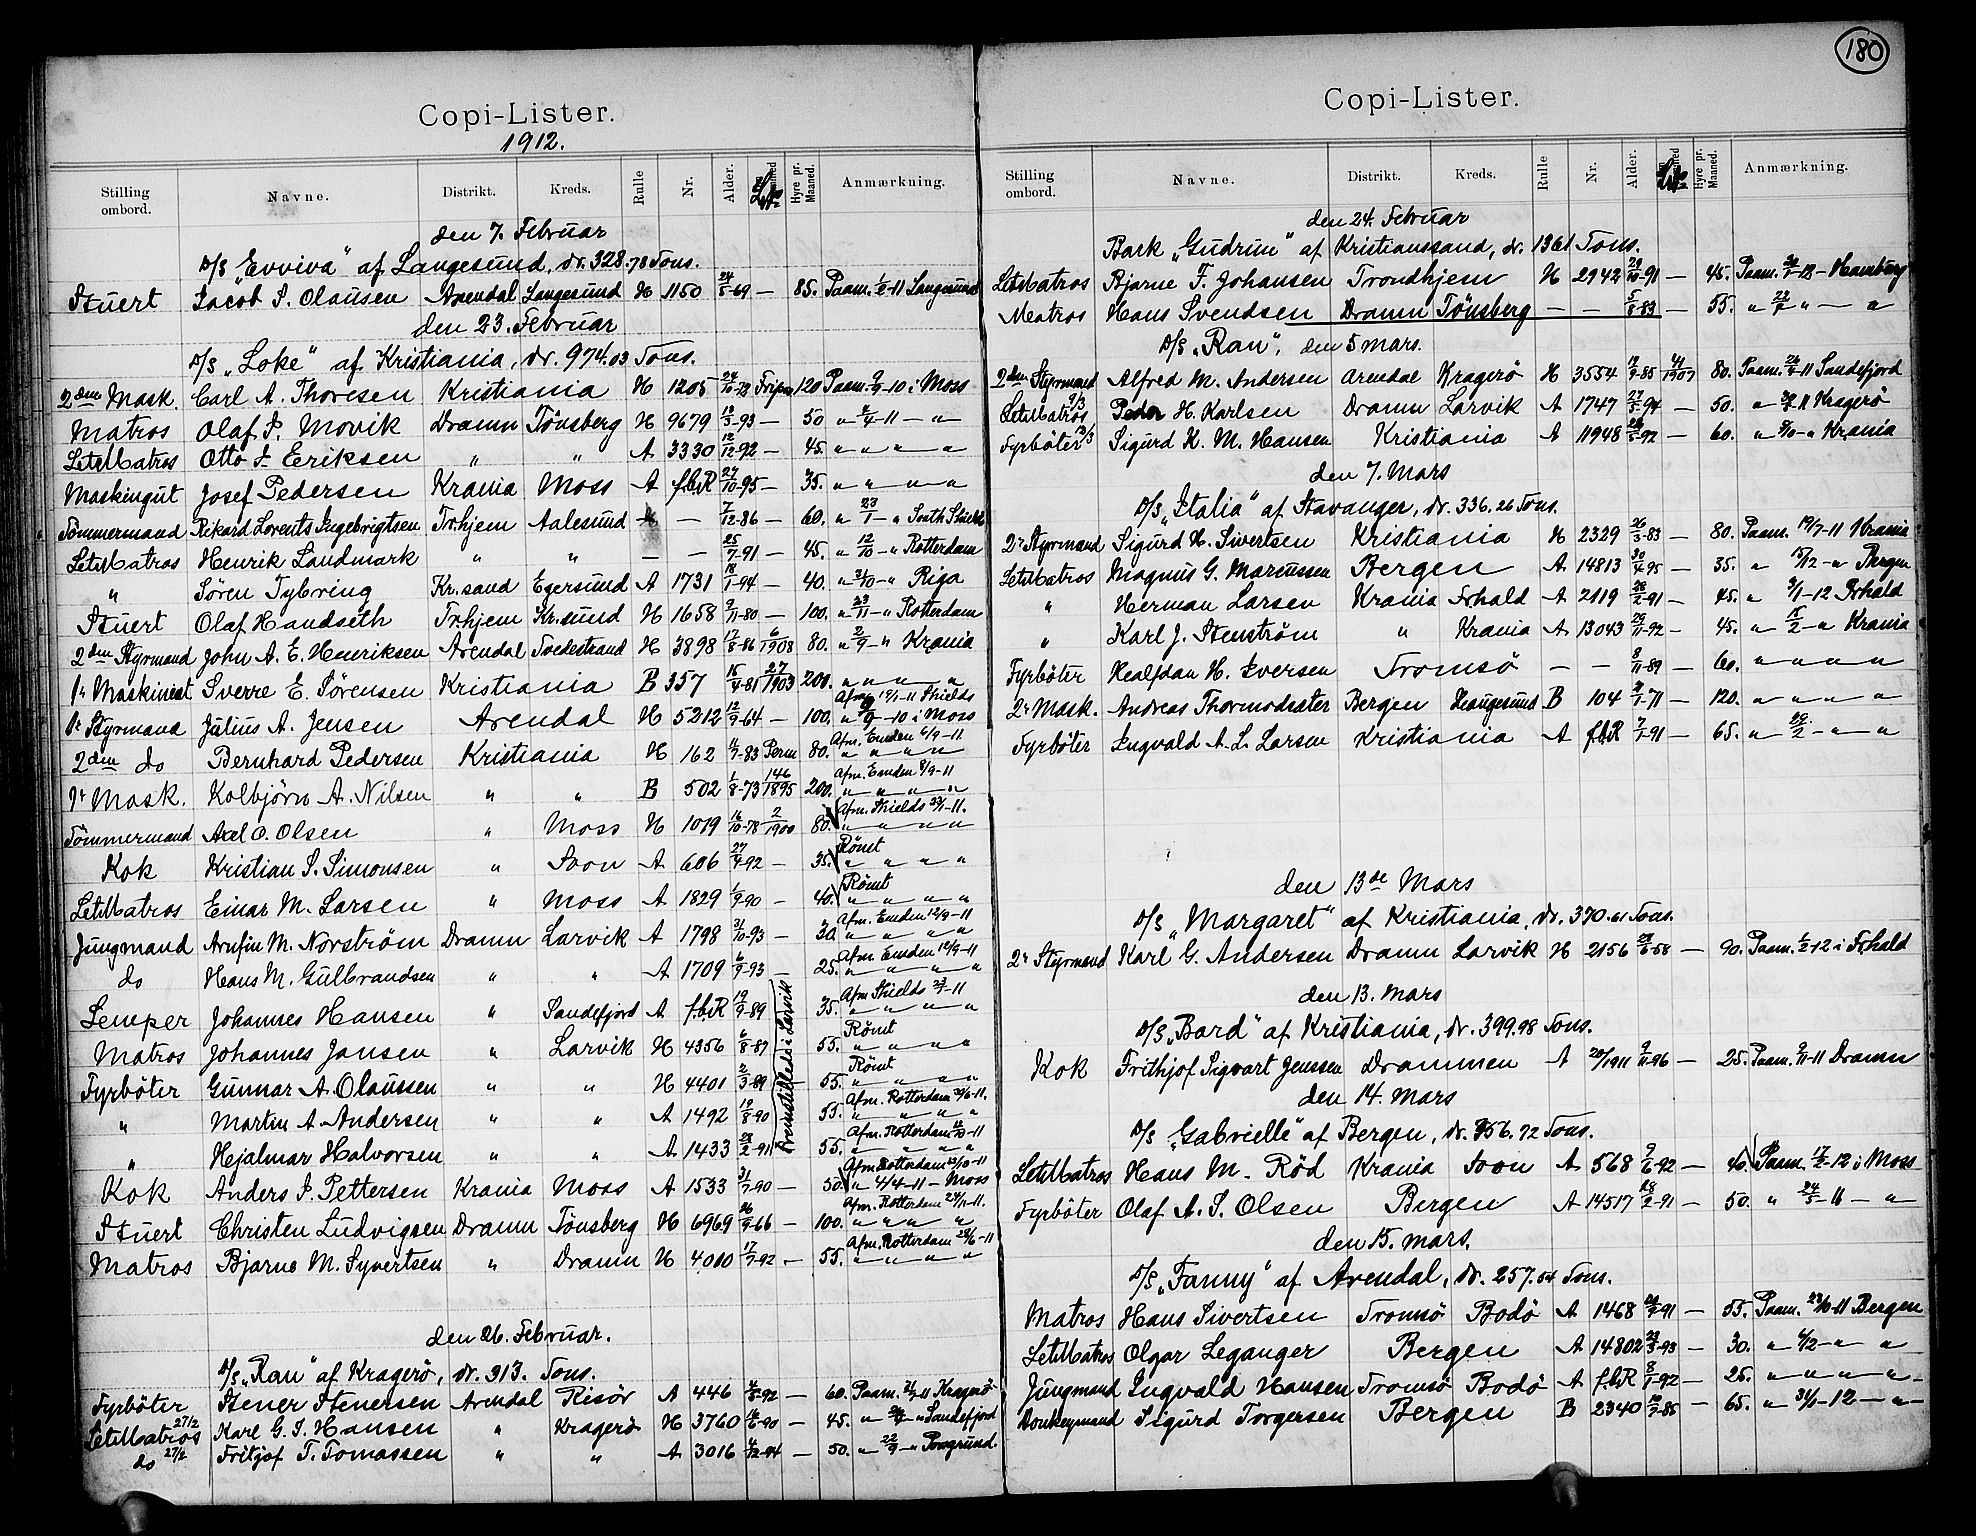 180
Copi-Lister.
1912.
Stilling ombord. Navne. Distrikt. Kreds. Rulle Nr. Alder. Hyre pr. Maaned. Anmærkning.
den 7. Februar
D/S „Evviva" af Langesund, dr. 328.78 Tons.
Stuert Jacob S. Olausen Arendal Langesund H 1150 24/5-69 — 85. Paam. 1/6-11 Langesund
den 23. Februar
D/S „Loke" af Kristiania, dr. 974.03 Tons.
2den Mask. Carl A. Thoresen Kristiania H 1205 120 Paam. -10 i Moss
Matros Olaf S. Movik Dramn Tönsberg H 9679 /3-93 — 50 " -11 — "
LetMatros Otto I. Eeriksen " " A 3330 12/12-92 — 45. " " "
Maskingut Josef Pedersen Krania Moss A f.b.R 27/10-95 — 35. " " "
Tömmermand Rikard Lorents Ingebrigtsen Trhjem Aalesund — 7/12-86 — 60. " 23/1 — " South Shields
LetMatros Henrik Landmark " " — — 25/7-91 — 45. " 12/10 — " Rotterdam
" Sören Tybring Kr.sand Egersund A 1731 18/1-94 — 40. " 3/10 — " Riga
Stuert Olaf Handseth Trhjem Kr.sund H 1658 9/11-80 — 100. " 23/11 — " Rotterdam
2den Styrmand John A. E. Henriksen Arendal Tvedestrand H 3898 17/8-86 6/1908 80. " 2/9 — " Krania
1ste Maskinist Sverre E. Sörensen Kristiania B 357 15/4-81 27/1903 200. " " "
1ste Styrmand Julius A. Jensen Arendal H 5212 12/9-64 — 100. Afm. -11 Shields " -10 i Moss
2den do Bernhard Pedersen Kristiania H 162 /7-83 Perm 80. Afm. Emden 6/9-11 " " "
1ste Mask. Kolbjörn A. Nilsen " " B 502 1/8-73 146/1895 200. Afm. Emden 8/9-11 " " "
Tömmermand Axel O. Olsen " Moss H 1019 16/10-78 2/1900 80. Afm. Shields -11. " " "
Kok Kristian S. Simonsen " Soon A 606 27/4-92 — 35. Römt " " "
LetMatros Einar M. Larsen " Moss A 1829 1/9-90 — 40. Römt " " "
Jungmand Arnfin M. Norström Dramn Larvik A 1798 31/10-93 — 30 Afm. Emden 12/9-11 " " "
do Hans M. Gulbrandsen " " A 1709 6/9-93 — 25. Afm. Emden 12/9-11 " " "
Lemper Johannes Hansen " Sandefjord A f.b.R 19/9-89 35. Afm. Shields -11 " " "
Matros Johannes Jansen " Larvik H 4356 6/8-87 55. Römt " " "
Fyrböter Gunnar A. Olaussen " " H 4401 2/3-89 55. Römt " " "
" Martin A. Andersen " " A 1492 19/8-90 55. Afm. Rotterdam -11. " " "
" Hejalmar Halvorsen " " A 1433 28/2-91 55. Afm. Rotterdam -11 " " "
Fremstilledes i Larvik
Kok Anders I. Pettersen Krania Moss A 1533 31/7-90 — 50. Afm. Rotterdam -11 " 4/4-11 — Moss
Stuert Christen Ludvigsen Dramn Tönsberg H 6969 26/9-66 — 100. Afm. Rotterdam -11. " " "
Matros Bjarne M. Syvertsen " Dramn H 4080 17/7-92 — 55. Afm. Rotterdam -11 " " "
den 26. Februar.
D/S „Ran" af Kragerö, dr. 913. Tons.
Fyrböter Stener Stenersen Arendal Risör A 446 -92 — 60. Paam. -11 Kragerö
LetMatros 27/2 Karl G. I. Hansen " Kragerö H 3760 -90 — 45. " " Sandefjord
do 27/2 Fritjof T. Tomassen " " A 3016 /12-94 — 50. " 22/9 — " Porsgrund.
Copi-Lister.
Stilling ombord. Navne. Distrikt. Kreds. Rulle Nr. Alder. Hyre pr. Maaned. Anmærkning.
den 24. Februar
Bark „Gudrun" af Kristianssand, dr. 1361 Tons.
LetMatros Bjarne F. Johansen Trondhjem H 2942 29/10-91 — 45. Paam. -12 — Hamburg
Matros Hans Svendsen Dramn Tönsberg — — 5/8-83 — 55. " " — "
D/S „Ran", den 5 mars.
2den Styrmand Alfred M. Andersen Arendal Kragerö H 3554 19/9-85 41/1907 80. Paam. -11 Sandefjord
LetMatros 9/3 Peder H. Karlsen Dramn Larvik A 1747 27/5-94 — 50. " -11 Kragerö
Fyrböter 12/3 Sigurd K. M. Hansen Kristiania A 11948 /5-92 — 60. " /10 — " Krania
den 7. Mars
D/S „Italia" af Stavanger, dr. 336.26 Tons.
2n Styrmand Sigurd H. Sivertsen Kristiania H 2329 26/3-83 — 80. Paam. 19/7-11 Krania
LetMatros Magnus G. Marcussen Bergen A 14813 30/4-95 — 35. " 15/12 — " Bergen
" Herman Larsen Krania Frhald A 2119 28/2-91 — 45. " 3/1-12 Frhald
" Karl J. Stenström " Krania A 13043 /11-92 — 45. " 15/2 — " Krania
Fyrböter Healfdan H. Iversen Tromsö — — 8/11-89 — 60. " " "
2n Mask. Andreas Thormodsæter Bergen Heaugesund B 104 /1-71 — 120. " " "
Fyrböter Ingvald A. L. Larsen Kristiania A f.b.R 7/1-91 — 65. " /2 — " "
den 13de Mars
D/S „Margaret" af Kristiania, dr. 370.61 Tons.
2n Styrmand Karl G. Andersen Dramn Larvik H 2156 -58 — 90. Paam. 1/2-12 i Frhald
den 13. Mars
D/S „Bard" af Kristiania, dr. 399.98 Tons.
Kok Frithjof Sigvart Jenssen Drammen A 20/1911 9/11-96 — 25. Paam. 9/11-11 Dramn
den 14. Mars
D/S „Gabrielle" af Bergen, dr. 756.72 Tons.
LetMatros Hans M. Röd Krania Soon A 568 9/6-92 — 40. Paam. 17/2-12 i Moss
Fyrböter Olaf A. S. Olsen Bergen A 14517 28/2-91 — 50. " 24/5-11 — "
den 15. mars.
D/S „Fanny" af Arendal, dr. 257.54 Tons.
Matros Hans Sivertsen Tromsö Bodö A 1468 -91 — 55. Paam. /10-11 Bergen
LetMatros Olgar Leganger Bergen A 14802 -93 — 30. " /12 — " "
Jungmand Ingvald Hansen Tromsö Bodö A f.b.R 8/1-92 — 25. " " "
Donkeymand Sigurd Torgersen Bergen B 2340 -85 — 65. " 3/1-12 — " —